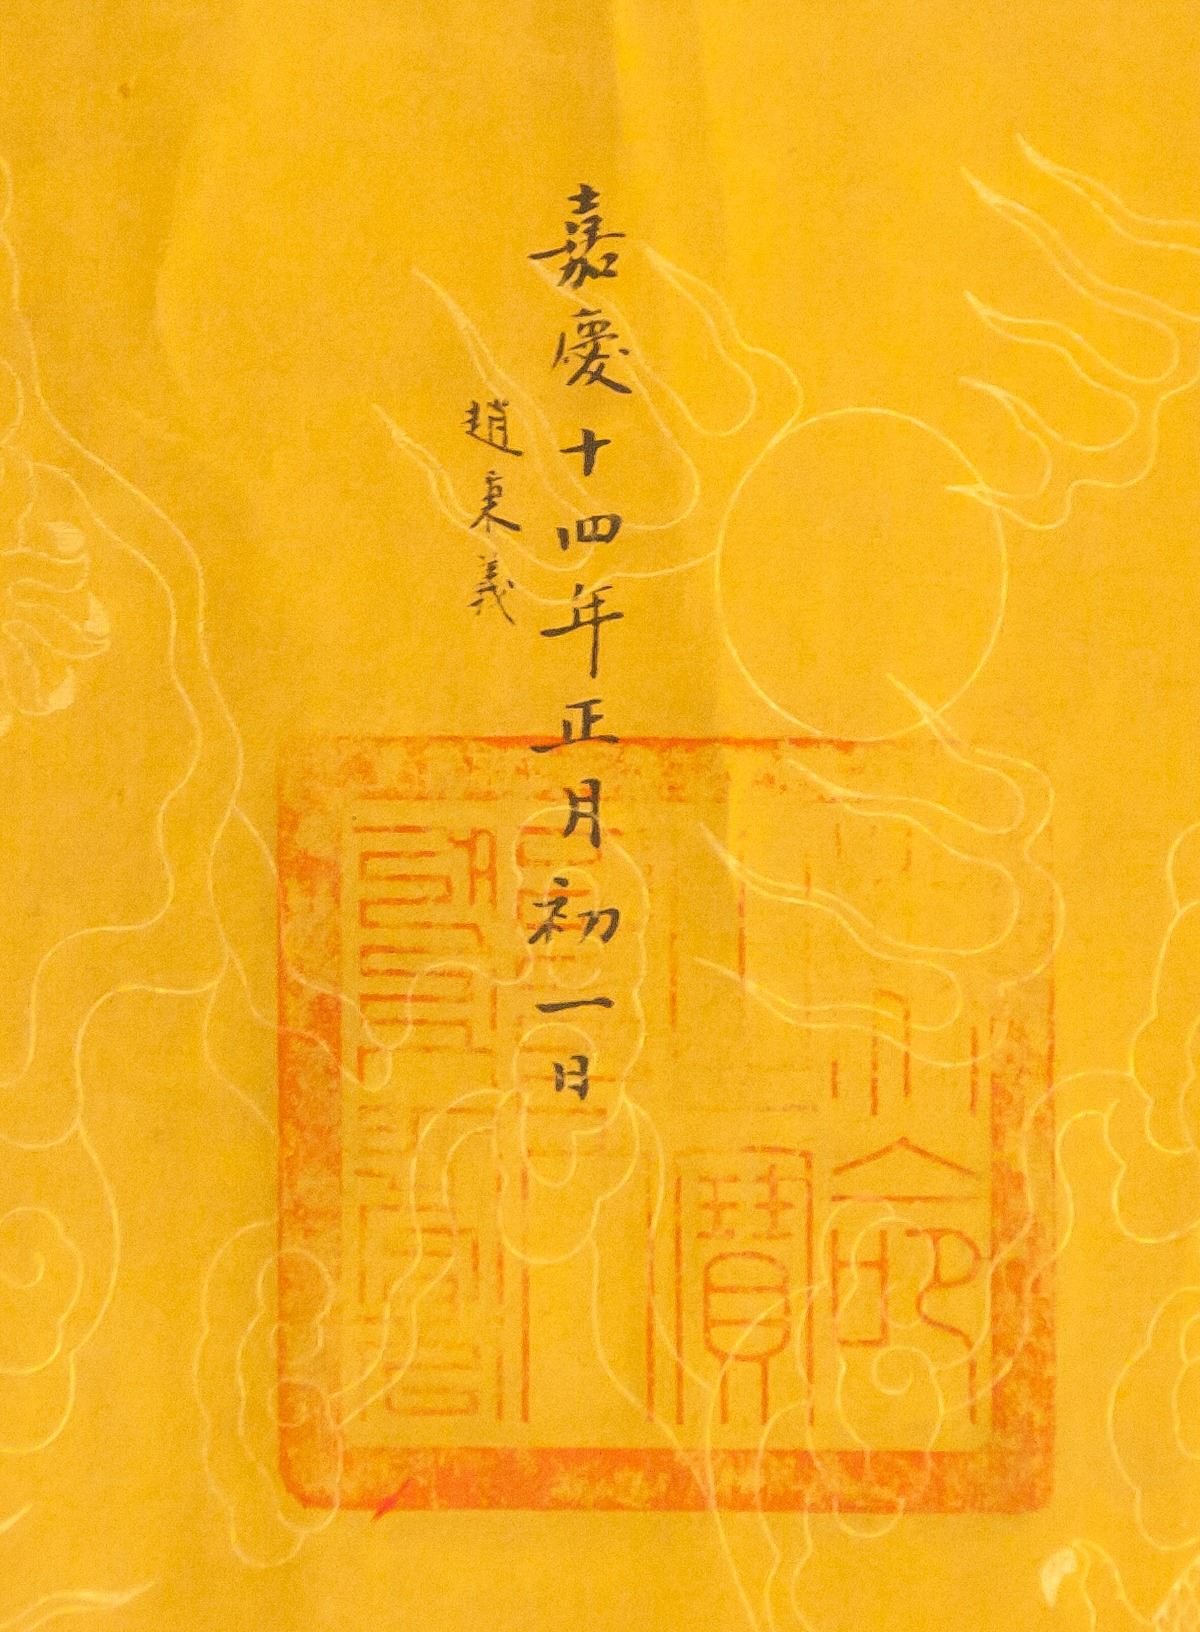 嘉慶十四年正月初一日
趙秉義
命
寶